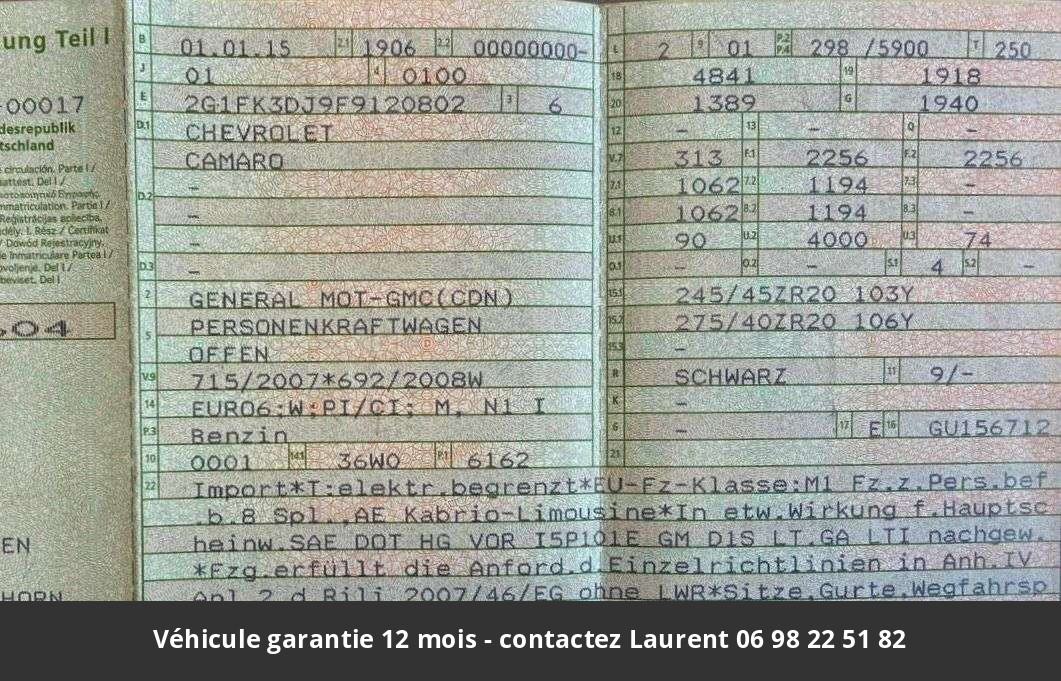 ung Teil I
-00017
desrepublik
tschland
e circulación. Parte I /
attest. Del I /
mmatriculation. Partie I /
Reģistrācijas apliecība.
dély. I. Rész / Certifikat
/ Dowód Rejestracyjny.
e Inmatriculare Partea I /
ovoljenje. Del I /
beviset. Del I
604
EN
HORN
B 01.01.15 2.1 1906 2.2 00000000-
J 01 4 0100
E 2G1FK3DJ9F9120802 3 6
D.1 CHEVROLET
CAMARO
D.2 –
–
–
D.3 –
2 GENERAL MOT-GMC(CDN)
5 PERSONENKRAFTWAGEN
OFFEN
V.9 715/2007*692/2008W
14 EURO6;W;PI/CI; M, N1 I
P.3 Benzin
10 0001 14.1 36W0 P.1 6162
L 2 9 01 P.2 P.4 298 /5900 T 250
18 4841 19 1918
20 1389 G 1940
12 – 13 – Q –
V.7 313 F.1 2256 F.2 2256
7.1 1062 7.2 1194 7.3 –
8.1 1062 8.2 1194 8.3 –
U.1 90 U.2 4000 U.3 74
O.1 – O.2 – S.1 4 S.2 –
15.1 245/45ZR20 103Y
15.2 275/40ZR20 106Y
15.3 –
R SCHWARZ 11 9/–
K –
6 – 17 E 16 GU156712
21
22 Import*T:elektr.begrenzt*EU-Fz-Klasse:M1 Fz.z.Pers.bef
.b.8 Spl.,AE Kabrio-Limousine*In etw.Wirkung f.Hauptsc
heinw.SAE DOT HG VOR I5P101E GM D1S LT.GA LTI nachgew.
*Fzg.erfüllt die Anford.d.Einzelrichtlinien in Anh.IV
Anl.2 d.Rili 2007/46/EG ohne LWR*Sitze,Gurte,Wegfahrsp
Véhicule garantie 12 mois - contactez Laurent 06 98 22 51 82